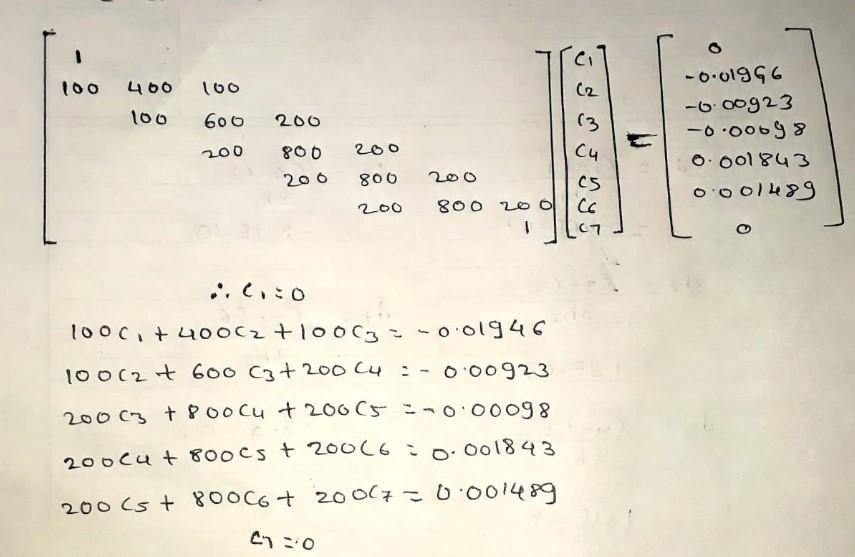 1
100 400 100
100 600 200
200 800 200
200 800 200
200 800 200
1
C1
C2
C3
C4
C5
C6
C7
=
0
-0.01946
-0.00923
-0.00098
0.001843
0.001489
0
∴ C1=0
100C1 + 400C2 + 100C3 = -0.01946
100C2 + 600C3 + 200C4 = -0.00923
200C3 + 800C4 + 200C5 = -0.00098
200C4 + 800C5 + 200C6 = 0.001843
200C5 + 800C6 + 200C7 = 0.001489
C7 = 0